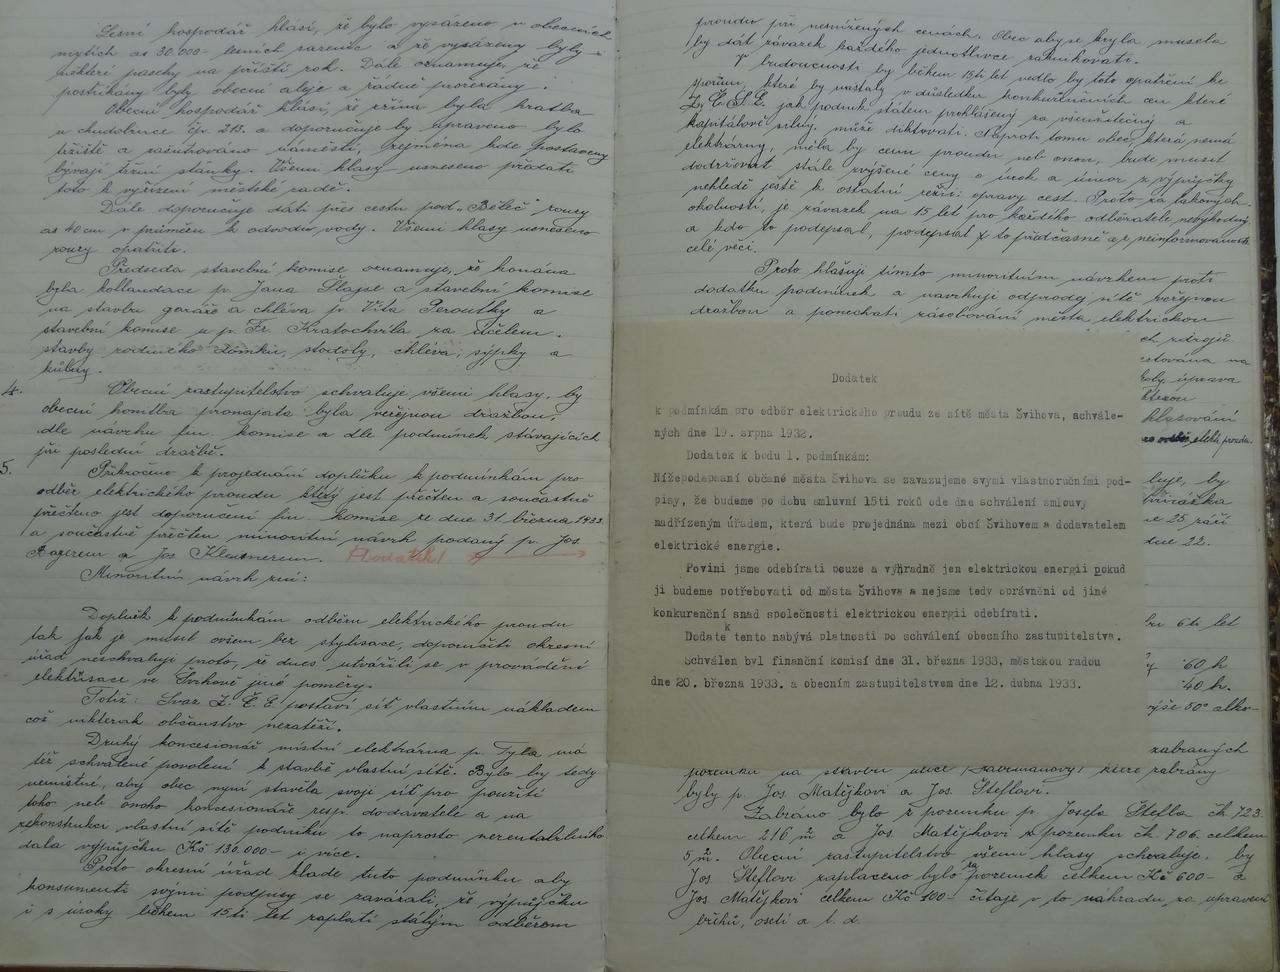 Lesní hospodář hlásí, že bylo vysázeno v obecních
mýtích as 30.000- lesních sazenic a že vysázeny byly i
některé paseky na příští rok. Dále oznamuje, že
postříkány byly obecní aleje a řádně prořezány.
Obecní hospodář hlásí, že zřízena byla hratba
u chudobince čp. 213. a doporučuje by upraveno bylo
tržiště a zašutrováno náměstí, zejména kde postaveny
bývají tržní stánky. Všemi hlasy usneseno předati
toto k vyřízení městské radě.
Dále doporučuje dáti přes cestu pod „Běleč" roury
as 40 cm v průměru k odvodu vody. Všemi hlasy usneseno
roury opatřiti.
Předseda stavební komise oznamuje, že konána
byla kollaudace p. Jana Šlajse a stavební komise
na stavbu garáže a chléva p. Víta Peroutky a
stavební komise u p. Fr. Kratochvíla za účelem
stavby rodinného domku, stodoly, chléva, sýpky a
kůlny.
4. Obecní zastupitelstvo schvaluje všemi hlasy, by
obecní honitba pronajata byla veřejnou dražbou,
dle návrhu fin. komise a dle podmínek stávajících
při poslední dražbě.
5. Přikročeno k projednání doplňku k podmínkám pro
odběr elektrického proudu který jest přečten a současně
přečteno jest doporučení fin. komise ze dne 31. března 1933
a současně přečten minoritní návrh podaný p. Jos
a Jos
Dodatek!
Minoritní návrh zní:
Doplněk k podmínkám odběru elektrického proudu
tak jak je musil ovšem bez stylisace, doporučiti okresní
úřad neschvaluji proto, že dnes utvářili se v provádění
elektrisace ve Švihově jiné poměry.
Totiž: Svaz Z. Č. E. postaví síť vlastním nákladem
což nikterak občanstvo nezatíží.
Druhý koncesionář místní elektrárna p. Tyla má
též schválené povolení k stavbě vlastní sítě. Bylo by tedy
nemístné, aby obec nyní stavěla svoji síť pro použití
toho neb onoho koncesionáře resp. dodavatele a na
rekonstrukci vlastní sítě podniku to naprosto nerentabilního
dala výpůjčku Kč 130.000- i více.
Proto okresní úřad klade tuto podmínku aby
konsumenti svými podpisy se zavázali, že výpůjčku
i s úroky během 15ti let zaplatí stálým odběrem
proudu při nesnížených cenách. Obec aby se kryla musela
by dát závazek každého jednotlivce
V budoucnosti by během 15ti let vedlo by toto opatření ke
sporům, které by nastaly v důsledku konkurenčních cen které
Z. Č. E. jak podnik státem prohlášený za všeužitečný a
kapitálově silný, může diktovati. Naproti tomu obec, která nemá
elektrárny, měla by cenu proudu neb onen, bude muset
dodržovat stále zvýšené ceny o úrok a úmor z výpůjčky
nehledě ještě k ostatní režii: opravy cest. Proto za takových
okolností, je závazek na 15 let pro každého odběratele nevýhodný
a kdo to podepsal, podepsal to předčasně a z neinformovanosti
celé věci.
Proto hlásuji tímto minoritním návrhem proti
dodatku podmínek a navrhuji odprodej sítě veřejnou
dražbou a ponechati zásobování města elektrickou
Dodatek
k podmínkám pro odběr elektrického proudu ze sítě města Švihova, schvále-
ných dne 19. srpna 1932.
Dodatek k bodu 1. podmínkám:
Nížepodepsaní občané města Švihova se zavazujeme svými vlastnoručními pod-
pisy, že budeme po dobu smluvní 15ti roků ode dne schválení smlouvy
nadřízeným úřadem, která bude projednána mezi obcí Švihovem a dodavatelem
elektrické energie.
Povini jsme odebírati pouze a výhradně jen elektrickou energii pokud
ji budeme potřebovati od města Švihova a nejsme tedy oprávněni od jiné
konkurenční snad společnosti elektrickou energii odebírati.
Dodatek tento nabývá platnosti po schválení obecního zastupitelstva.
Schválen byl finanční komisí dne 31. března 1933, městskou radou
dne 20. března 1933. a obecním zastupitelstvem dne 12. dubna 1933.
zdrojů
na
úprava
hlasování
elektr. proudu
by
25 září
22.
6ti let
60 h
40 h.
50° alko-
zabraných
pozemků na stavbu ulice které zabrány
byly p. Jos. Matějkovi a Jos. Šteflovi.
Zabráno bylo z pozemku p. Josefa Štefla čk. 723.
celkem 216 m² a Jos. Matějkovi z pozemku čk. 706. celkem
5 m². Obecní zastupitelstvo všemi hlasy schvaluje, by
Jos Šteflovi zaplaceno bylo za pozemek celkem Kč 600- a
Jos. Matějkovi celkem Kč 100- čítaje v to náhradu za upravení
břehů, osetí a t. d.